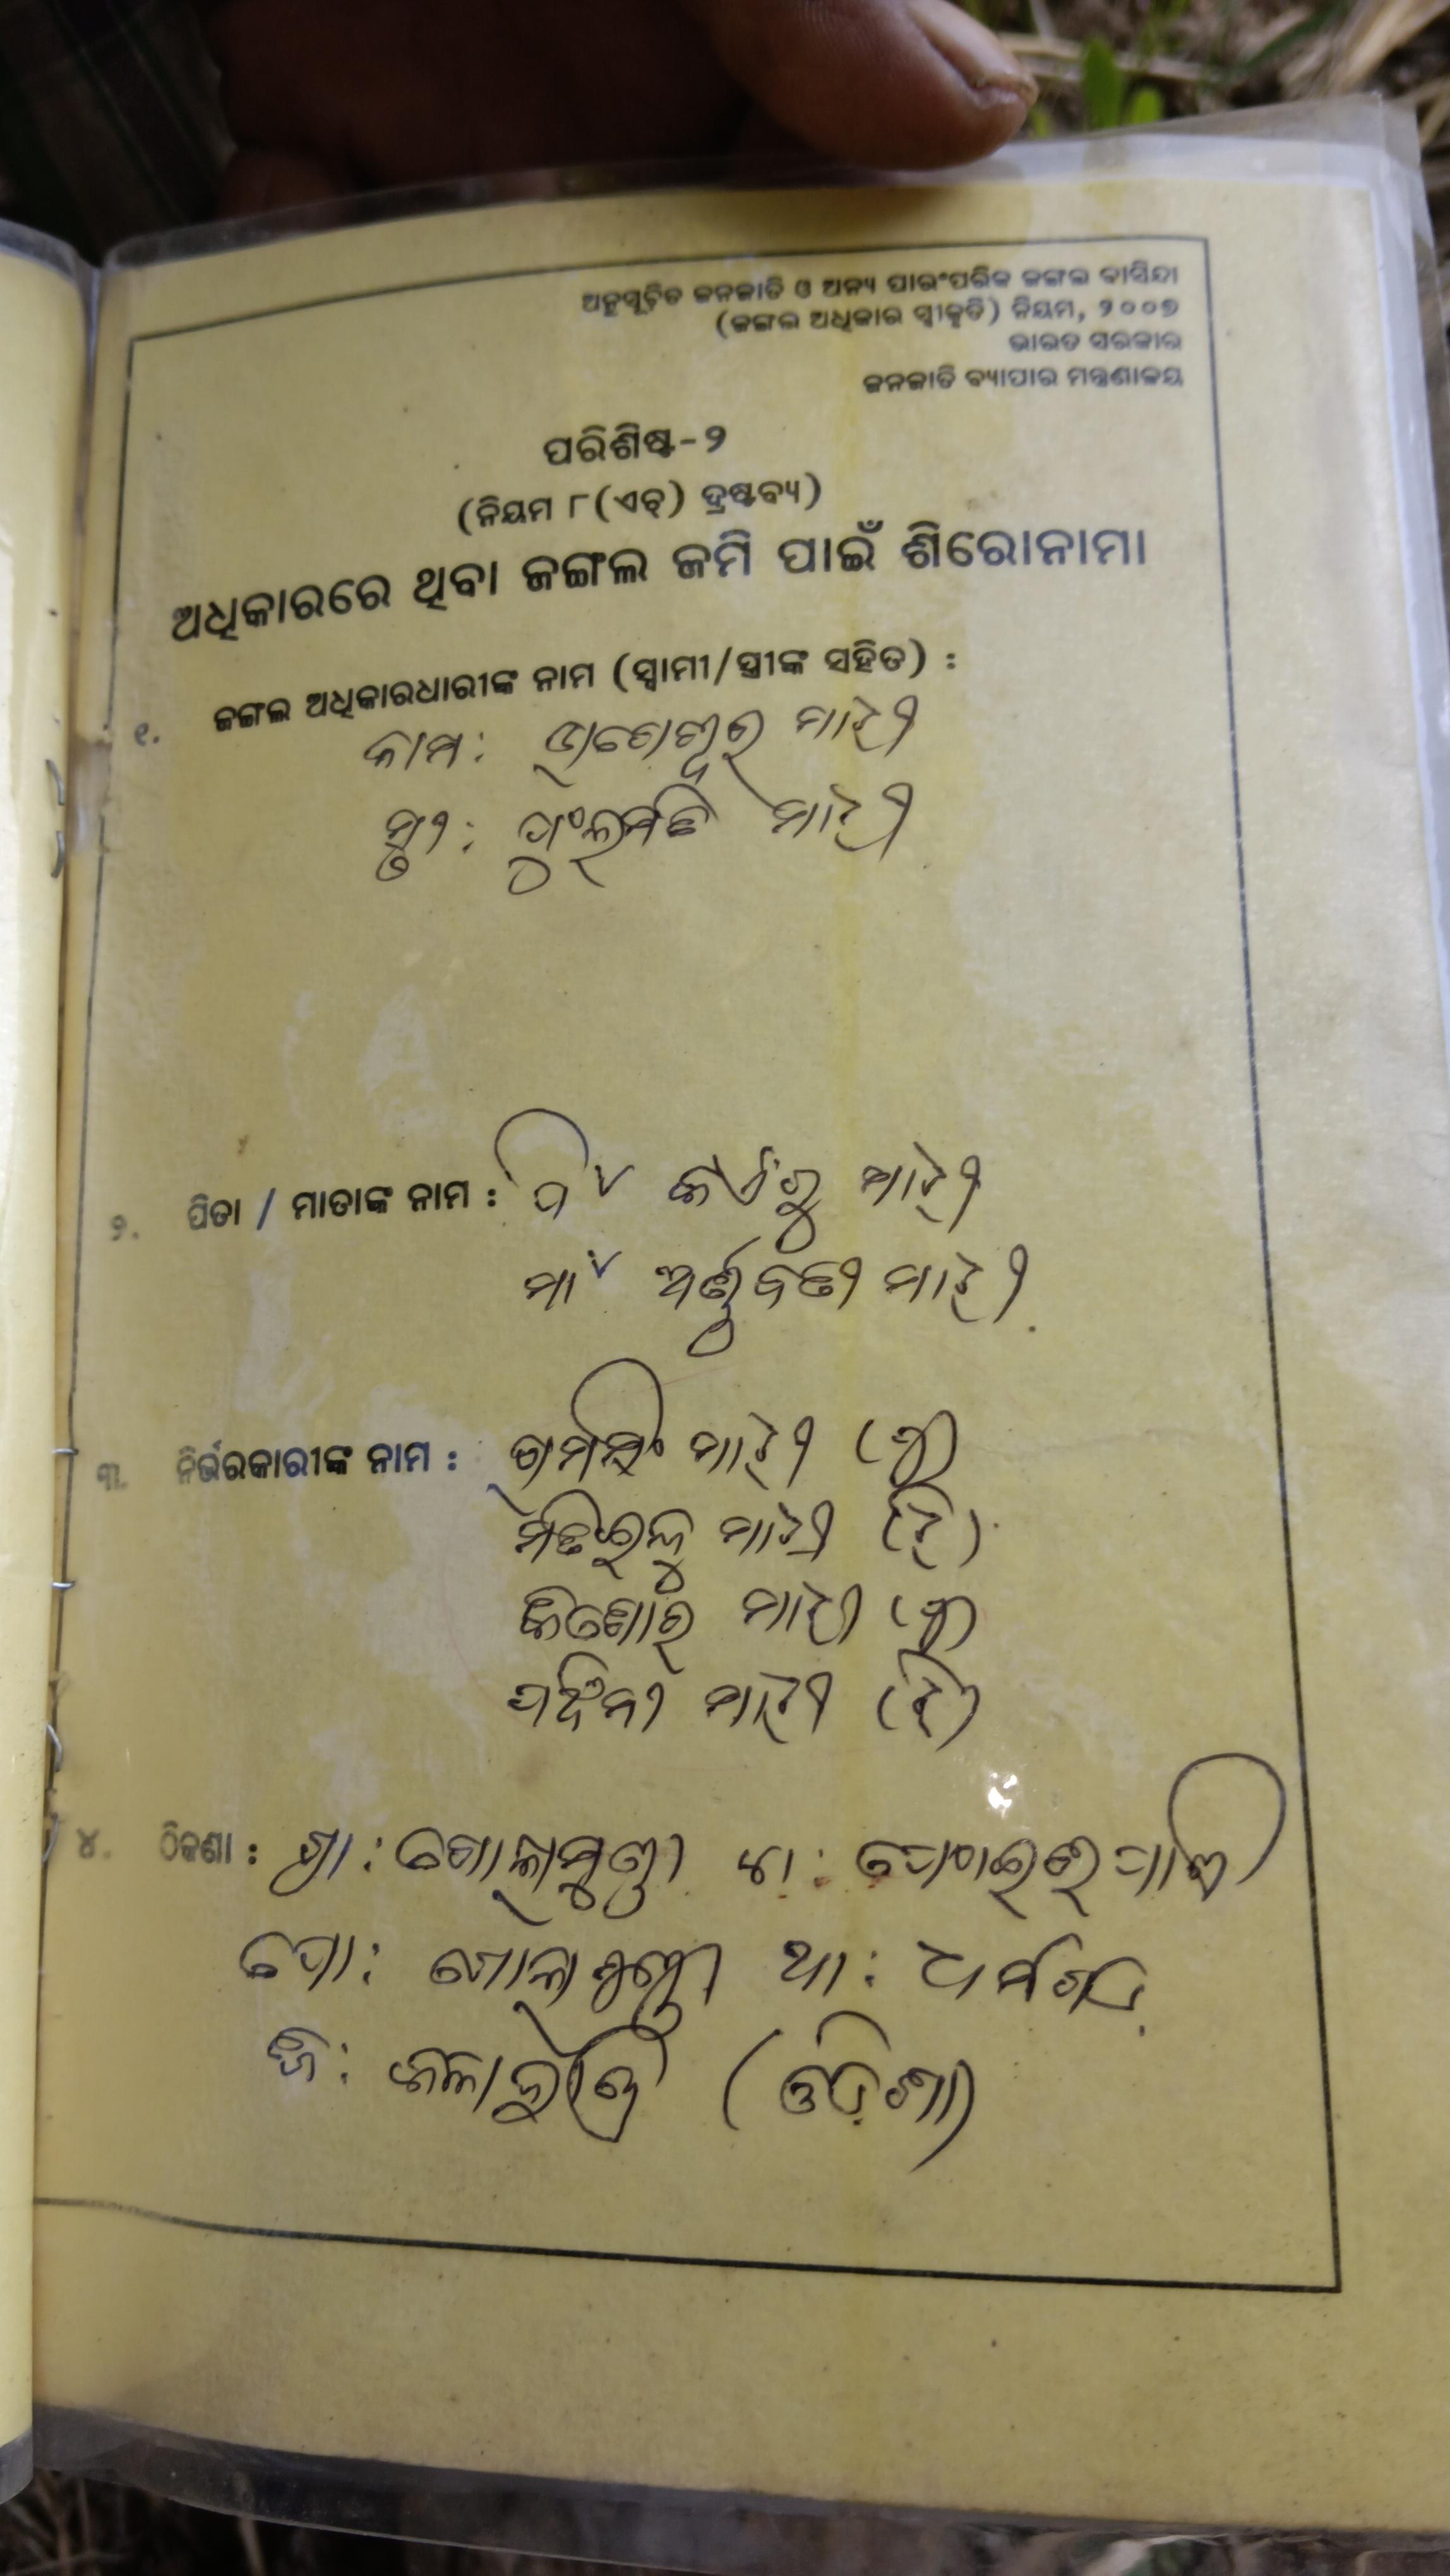 ଅନୁସୂଚିତ ଜନଜାତି ଓ ଅନ୍ୟ ପାରଂପରିକ ଜଙ୍ଗଲ ବାସିନ୍ଦା
(ଜଙ୍ଗଲ ଅଧିକାର ସ୍ୱୀକୃତି) ନିୟମ, ୨୦୦୭
ଭାରତ ସରକାର
ଜନଜାତି ବ୍ୟାପାର ମନ୍ତ୍ରଣାଳୟ
ପରିଶିଷ୍ଟ-୨
(ନିୟମ ୮(ଏଚ୍) ଦ୍ରଷ୍ଟବ୍ୟ)
ଅଧିକାରରେ ଥିବା ଜଙ୍ଗଲ ଜମି ପାଇଁ ଶିରୋନାମା
୧. ଜଙ୍ଗଲ ଅଧିକାରଧାରୀଙ୍କ ନାମ (ସ୍ୱାମୀ/ସ୍ତ୍ରୀଙ୍କ ସହିତ) :
ନାମ: ମାଝୀ
ସ୍ତ୍ରୀ: ମାଝୀ
୨. ପିତା / ମାତାଙ୍କ ନାମ : ପି ମାଝୀ
ମା ମାଝୀ
୩. ନିର୍ଭରକାରୀଙ୍କ ନାମ : ମାଝୀ (ପୁ)
ମାଝୀ (ଝି)
କିଶୋର ମାଝୀ (ପୁ)
ମାଝୀ (ଝି)
୪. ଠିକଣା : ଗ୍ରା: ଗୋଲାମୁଣ୍ଡା
ପୋ: ଗୋଲାମୁଣ୍ଡା ଥା: ଧର୍ମଗଡ଼
ଜି: କଳାହାଣ୍ଡି (ଓଡ଼ିଶା)